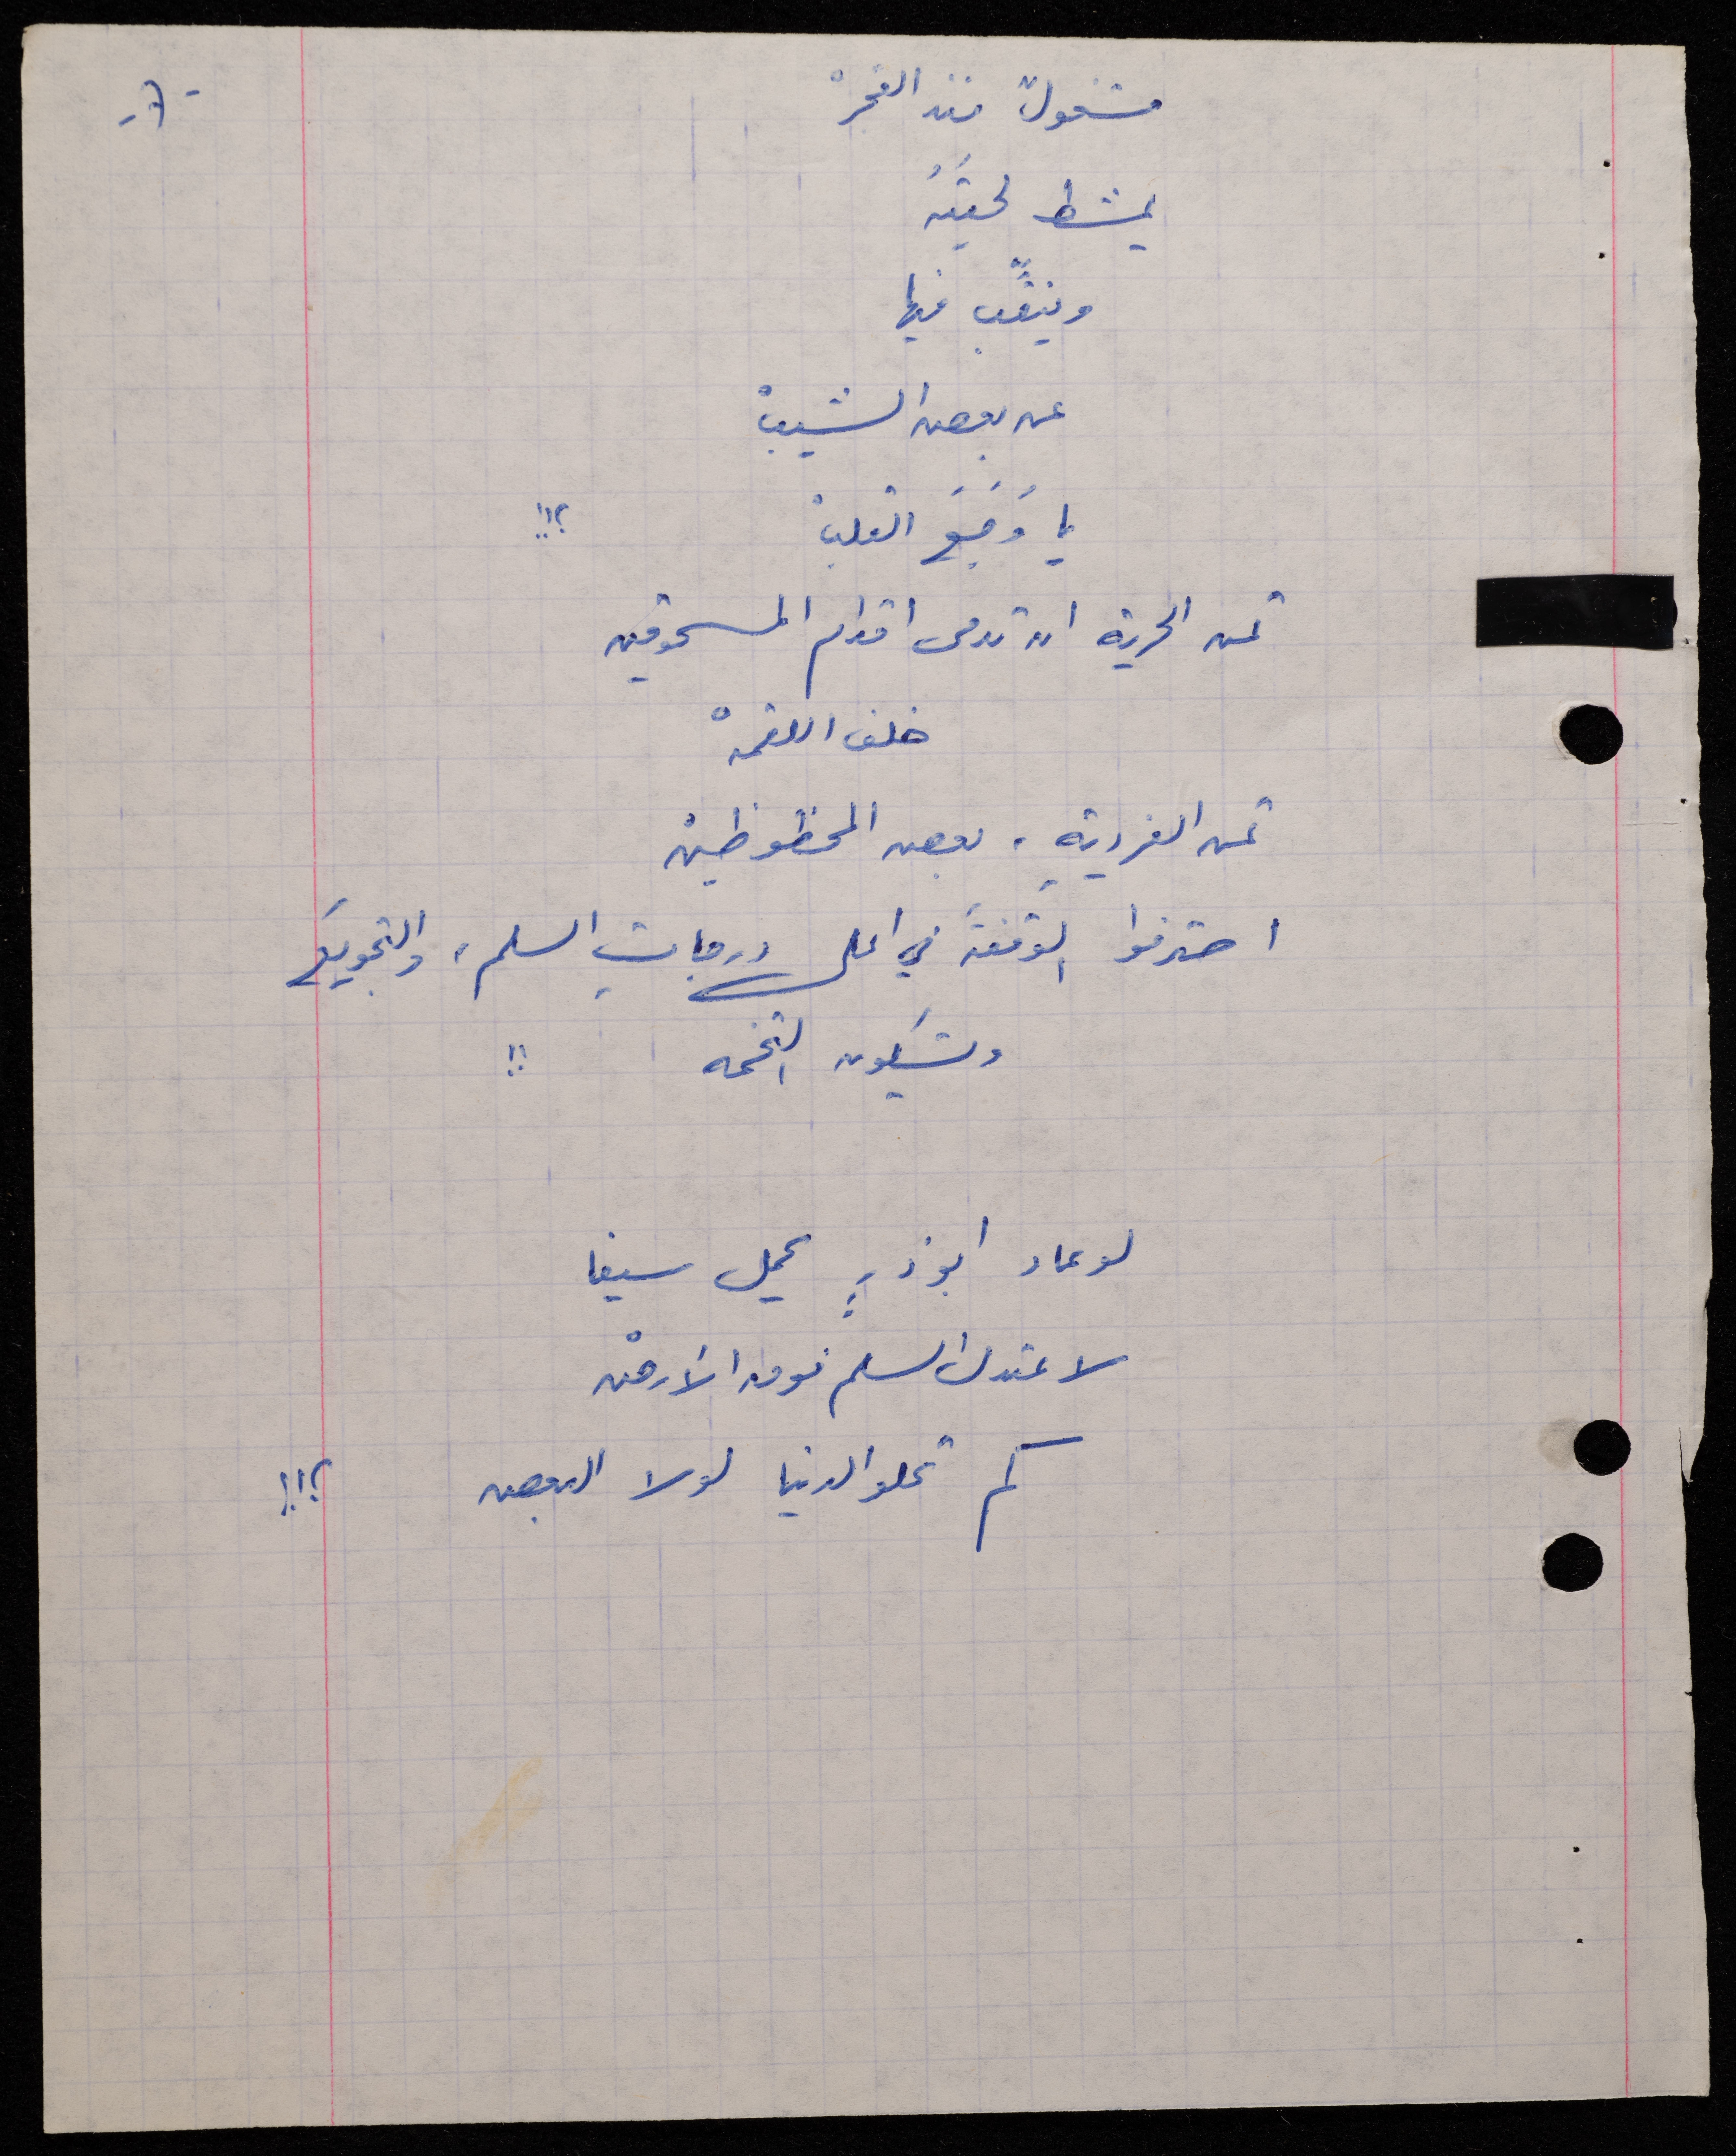 مشغولٌ منذ الفجرْ
يمشط لحيتَهُ
وينقّب فيها
عن بعض الشيبْ
يا وَجَعَ القلبْ ؟!!
ثمن الحرية ان تدمى اقدام المسحوقين
خلف اللقمهْ
ثمن الفرديةِ، بعض المحظوظينْ
احترفوا الوقفةَ في اعلى درجاتِ السلم، والتجويعَ
ويشكون التخمه !!
لو عاد ابو ذرٍ يحمل سيفا
لا عتدل السلم فوق الأرضْ
كم تحلو الدنيا لولا البعض ؟!!!